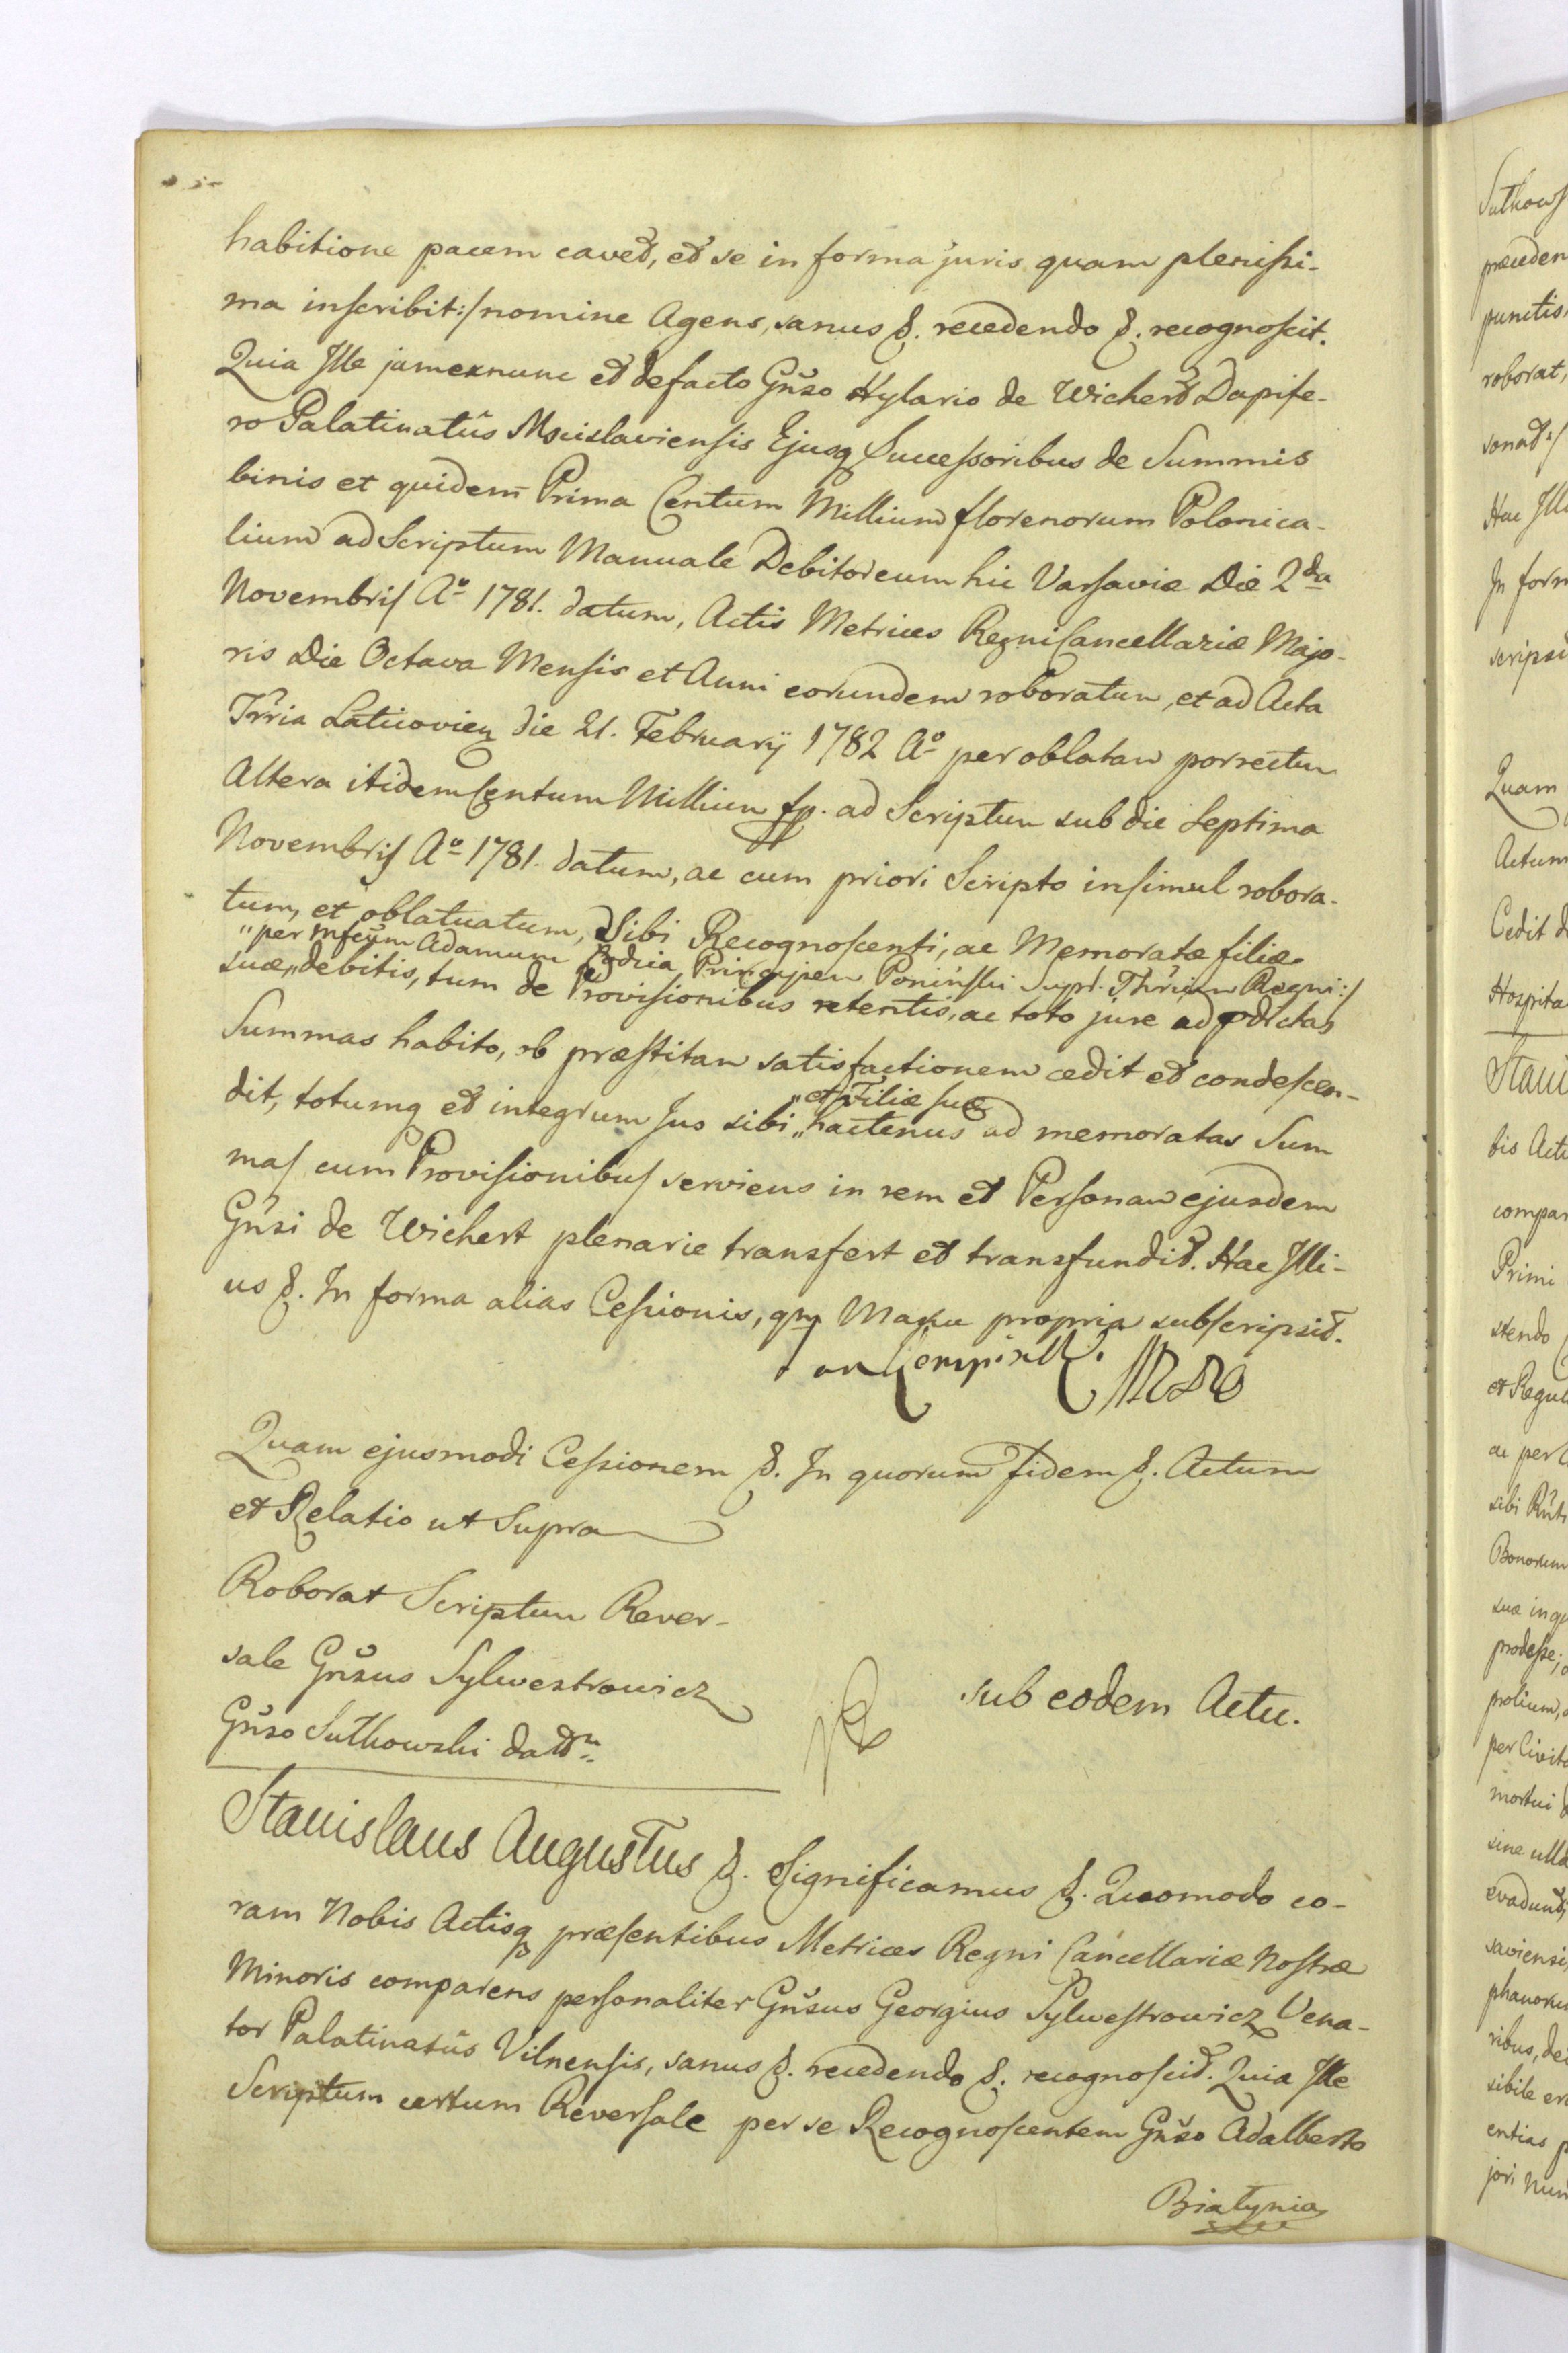 habitione pacem cavet, et se in forma juris quam plenissi-
ma inscribit:/ nomine Agens, sanus &. recedendo &. recognoscit.
Quia Ille jam exnunc et defacto Gnŝo Hylario de Wichert Dapife-
ro Palatinatûs Mscislaviensis Ejusq Successoribus de Summis
binis et quidem Prima Centum Millium florenorum Polonica-
lium ad Scriptum Manuale Debitoreum hic Varsaviæ Die 2da
Novembris Ao 1781. datum, Actis Metrices Regni Cancellariæ Majo-
ris Die Octava Mensis et Anni eorundem roboratum, et ad Acta
Trria Laticovien die 21. February 1782 Ao per oblatam porrectum
Altera itidem Centum Millium fp. ad Scriptum sub die Septima
Novembris Ao 1781. datum, ac cum priori Scripto insimul robora-
tum, et oblatuatum, Sibi Recognoscenti, ac Memoratæ filiæ
"per Mfcum Adamum Principem Poniński Supr. Thrium Regni:/
suæ,, debitis, tum de Provisionibus retentis, ac toto jure ad pdictas
Summas habito, ob præstitam satisfactionem cedit et condescen-
dit, totumq et integrum Jus sibi "et Filiæ suæ,, hactenus ad memoratas Sum
mas cum Provisionibus serviens in rem et Personam ejusdem
Gnŝi de Wichert plenarie transfert et transfundit. Hac Illi-
us &. In forma alias Cessionis, qm Manu propria subscripsit.
Quam ejusmodi Cessionem &. In quorum fidem &. Actum
et Relatio ut Supra
Roborat Scriptum Rever-
sale Gnŝus Sylwestrowicz
Gnŝo Sułkowski datm
sub eodem Actu.
Stanislaus Augustus &. Significamus &. Quomodo co-
ram Nobis Actisq præsentibus Metrices Regni Cancellariæ Nostræ
Minoris comparens personaliter Gnŝus Georgius Sylwestrowicz Vena-
tor Palatinatûs Vilnensis, sanus &. recedendo &. recognoscit. Quia Ille
Scriptum certum Reversale per se Recognoscentem Gnŝo Adalberto
Białynia
Sułkows
præceden
punctis,
roborat,
sonat:/
Hac Illi
In form
scripsit
Quam
Actum
Cedit d
Hospita
Stani
tis Actis
compar
Primi
stendo
et Regul
ac per
sibi
Bonorum
suæ in
prodesse;
prolium,
per Civita
mortui
sine ulla
evadunt,
saviensi,
ribus, de
sibile
entias p
jori